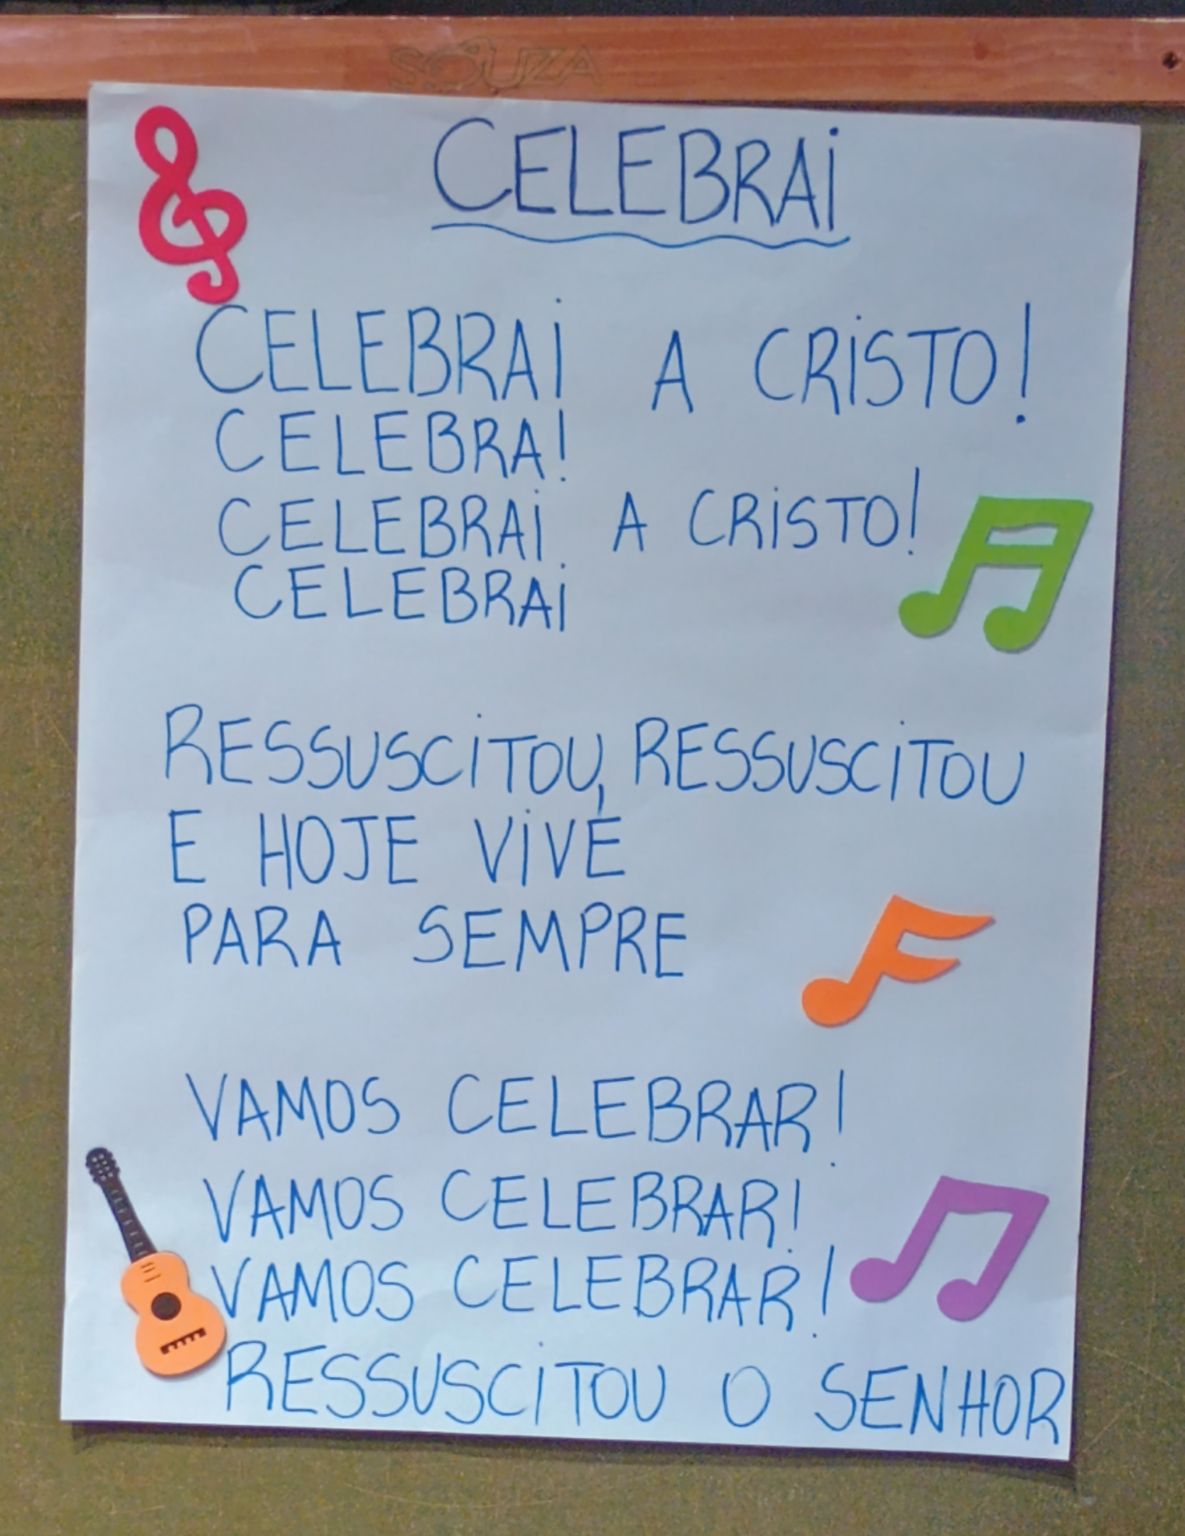 SOUZA
CELEBRAI
CELEBRAI A CRISTO!
CELEBRA!
CELEBRAI A CRISTO!
CELEBRAI
RESSUSCITOU, RESSUSCITOU
E HOJE VIVE
PARA SEMPRE
VAMOS CELEBRAR!
VAMOS CELEBRAR!
VAMOS CELEBRAR!
RESSUSCITOU O SENHOR